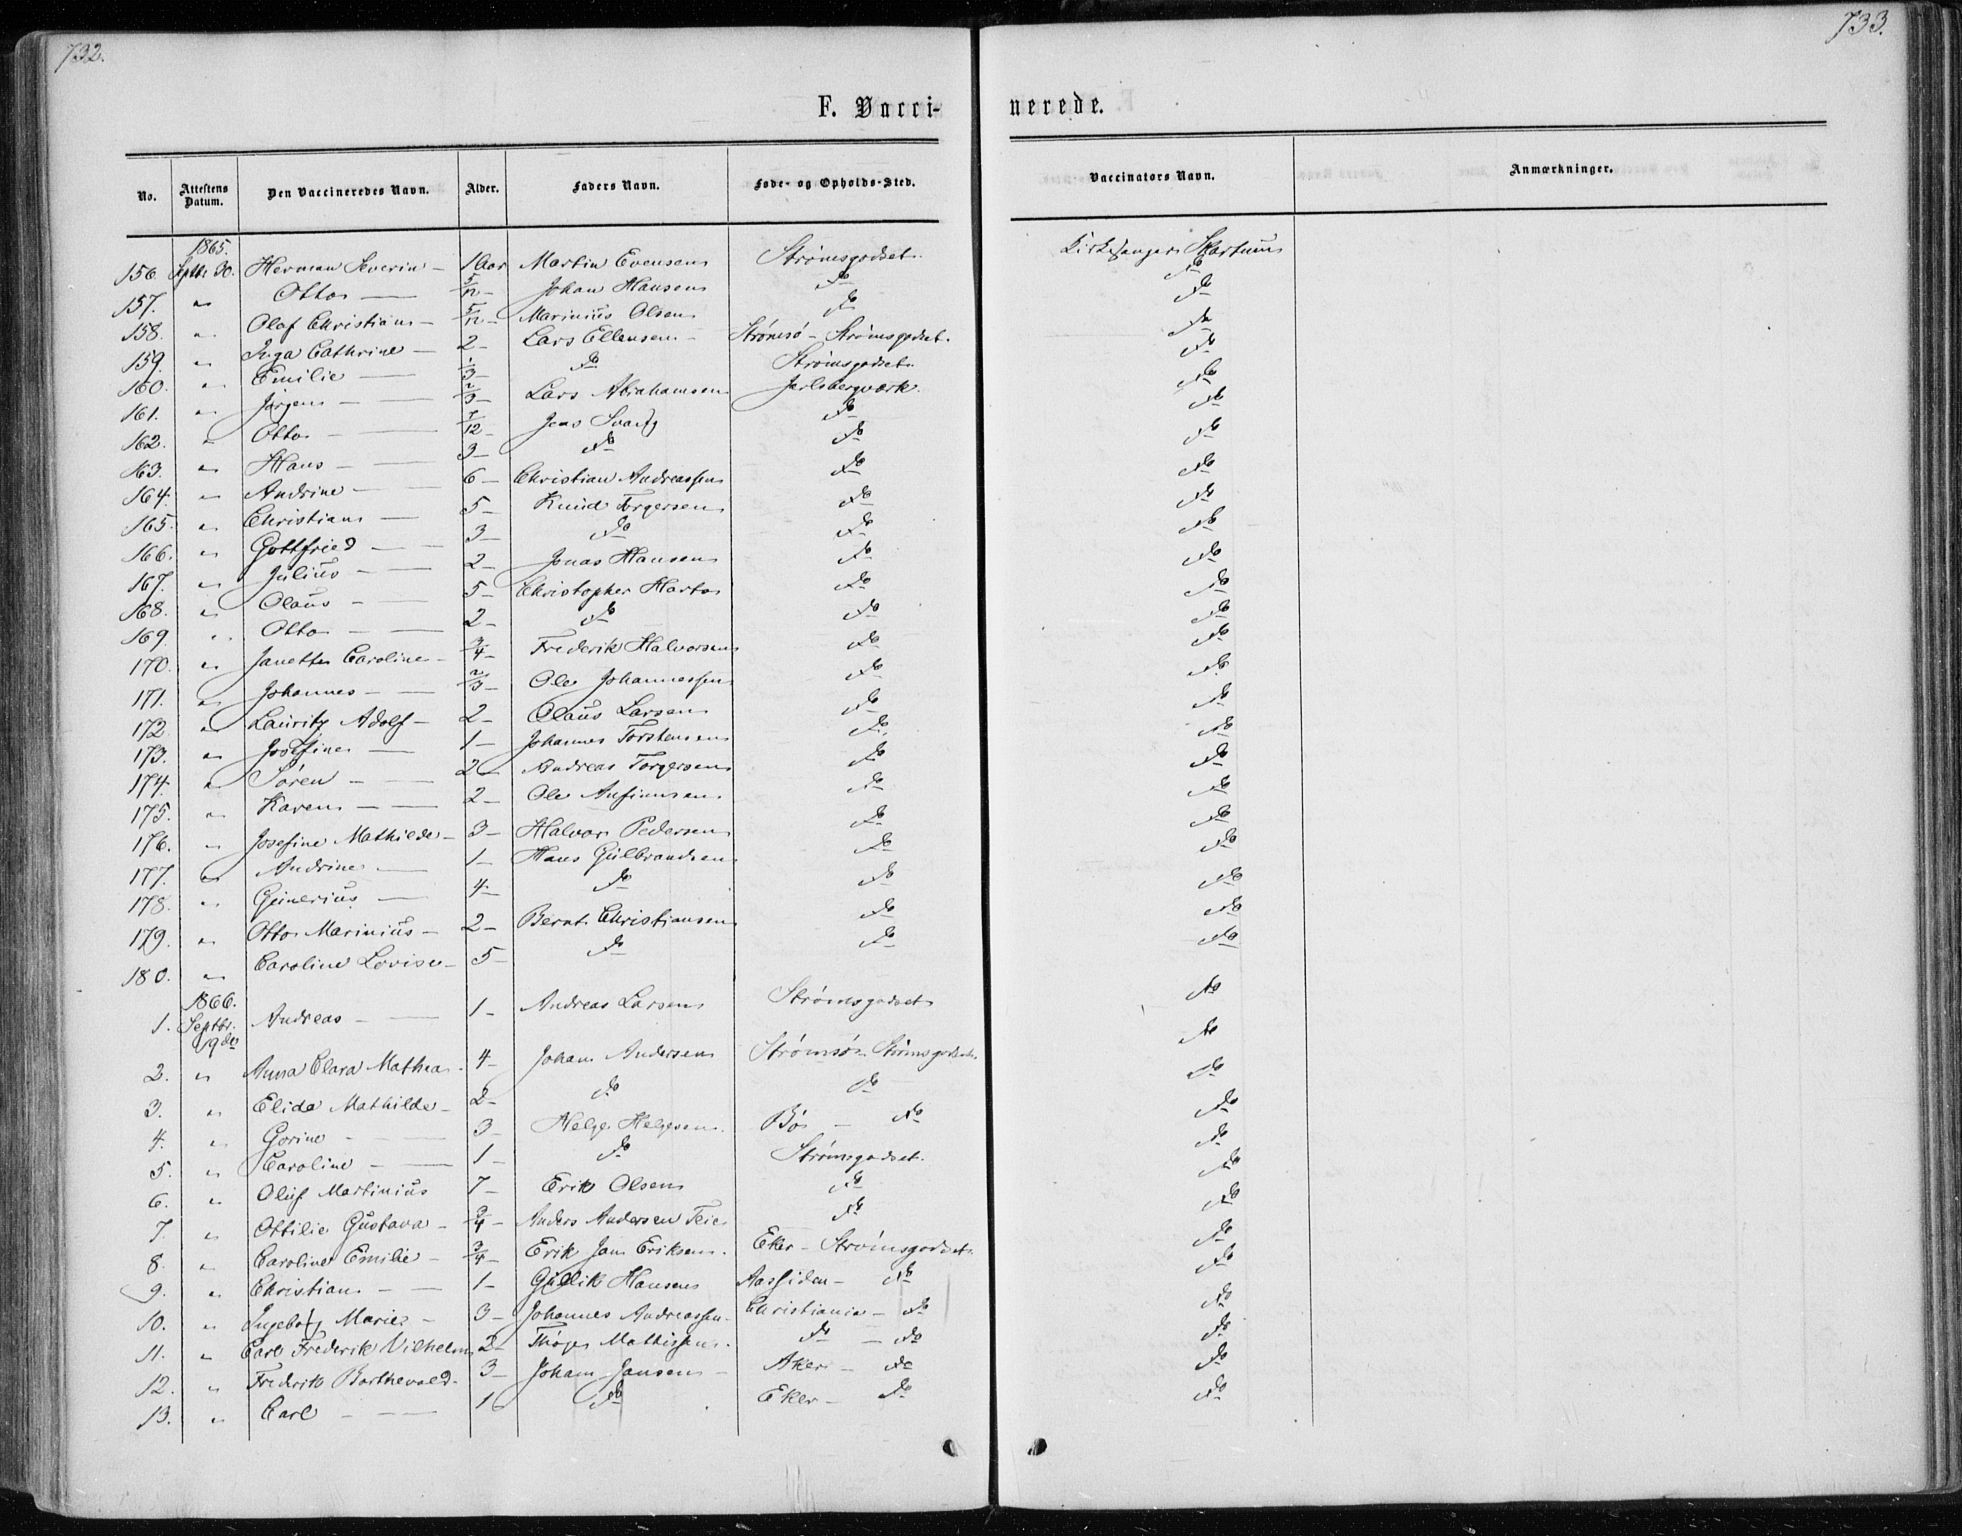 732.
733.
F. Vacci-
nerede.
No. Attestens Datum. Den Vaccineredes Navn. Alder. Faders Navn. Føde- og Opholds-Sted. Vaccinators Navn. Anmærkninger.
1865.
156 Septbr. 30. Herman Severin - 1 Aar Martin Evensen Strømsgodset. Kirkesanger Skartum
157. " Otto - 5/12 - Johan Hansen do do
158. " Olaf Christian - 5/12 - Marinius Olsen do do
159. " Inga Cathrine - 2 - Lars Ellensen - Strømsø - Strømsgodset. do
160. " Emilie - 1/3 - do Strømsgodset. do
161. " Jørgen - 2/3 - Lars Abrahamsen Jarlsbergværk. do
162. " Otto - 7/12 - Jens Svartz do do
163. " Hans - 3 - do do do
164. " Andrine - 6 - Christian Andreassen do do
165. " Christian - 5 - Knud Torgersen do do
166. " Gottfried - 3 - do do do
167. " Julius - 2 - Jonas Hansen do do
168. " Olaus - 5 - Christopher Harto do do
169. " Otto - 2 - do do do
170. " Janette Caroline - 3/4 - Frederik Halvorsen do do
171. " Johannes - 2/3 - Ole Johannessen do do
172. " Lauritz Adolf - 2 - Olaus Larsen do do
173. " Josefine - 1 - Johannes Torstensen do do
174. " Søren - 2 - Andreas Torgersen do do
175. " Karen - 2 - Ole Ansteensen do do
176. " Josefine Mathilde - 3 - Halvor Pedersen do do
177. " Andrine - 1 - Hans Gulbrandsen do do
178. " Gunerius - 4 - do do do
179. " Otto Marinius - 2 - Bernt Christiansen do do
180. " Caroline Lovise - 5 - do do do
1866.
1. Septbr. 19de Andreas - 1 - Andreas Larsen Strømsgodset do
2. " Anna Clara Mathea - 4 - Johan Andersen Strømsø - Strømsgodset do
3. " Elida Mathilde - 2 - do do do
4. " Gorine - 3 - Helge Helgesen. Bø - do do
5. " Caroline - 1 - do Strømsgodset. do
6. " Oluf Martinius 7 - Erik Olsen do do
7. " Ottilie Gustava - 3/4 - Anders Andersen Teie do do
8. " Caroline Emilie - 3/4 - Erik Jan Eriksen. Eker - Strømsgodset. do
9. " Christian - 1 - Gullik Hansen Aassiden - do do
10. " Ingeborg Marie - 3 - Johannes Andreassen. Christiania - do do
11. " Carl Frederik Vilhelm 2 - Thøger Mathissen. do - do do
12. " Frederik Barthevald - 3 - Johan Jansen - Aker - do do
13. " Carl - 1 do Eker - do do